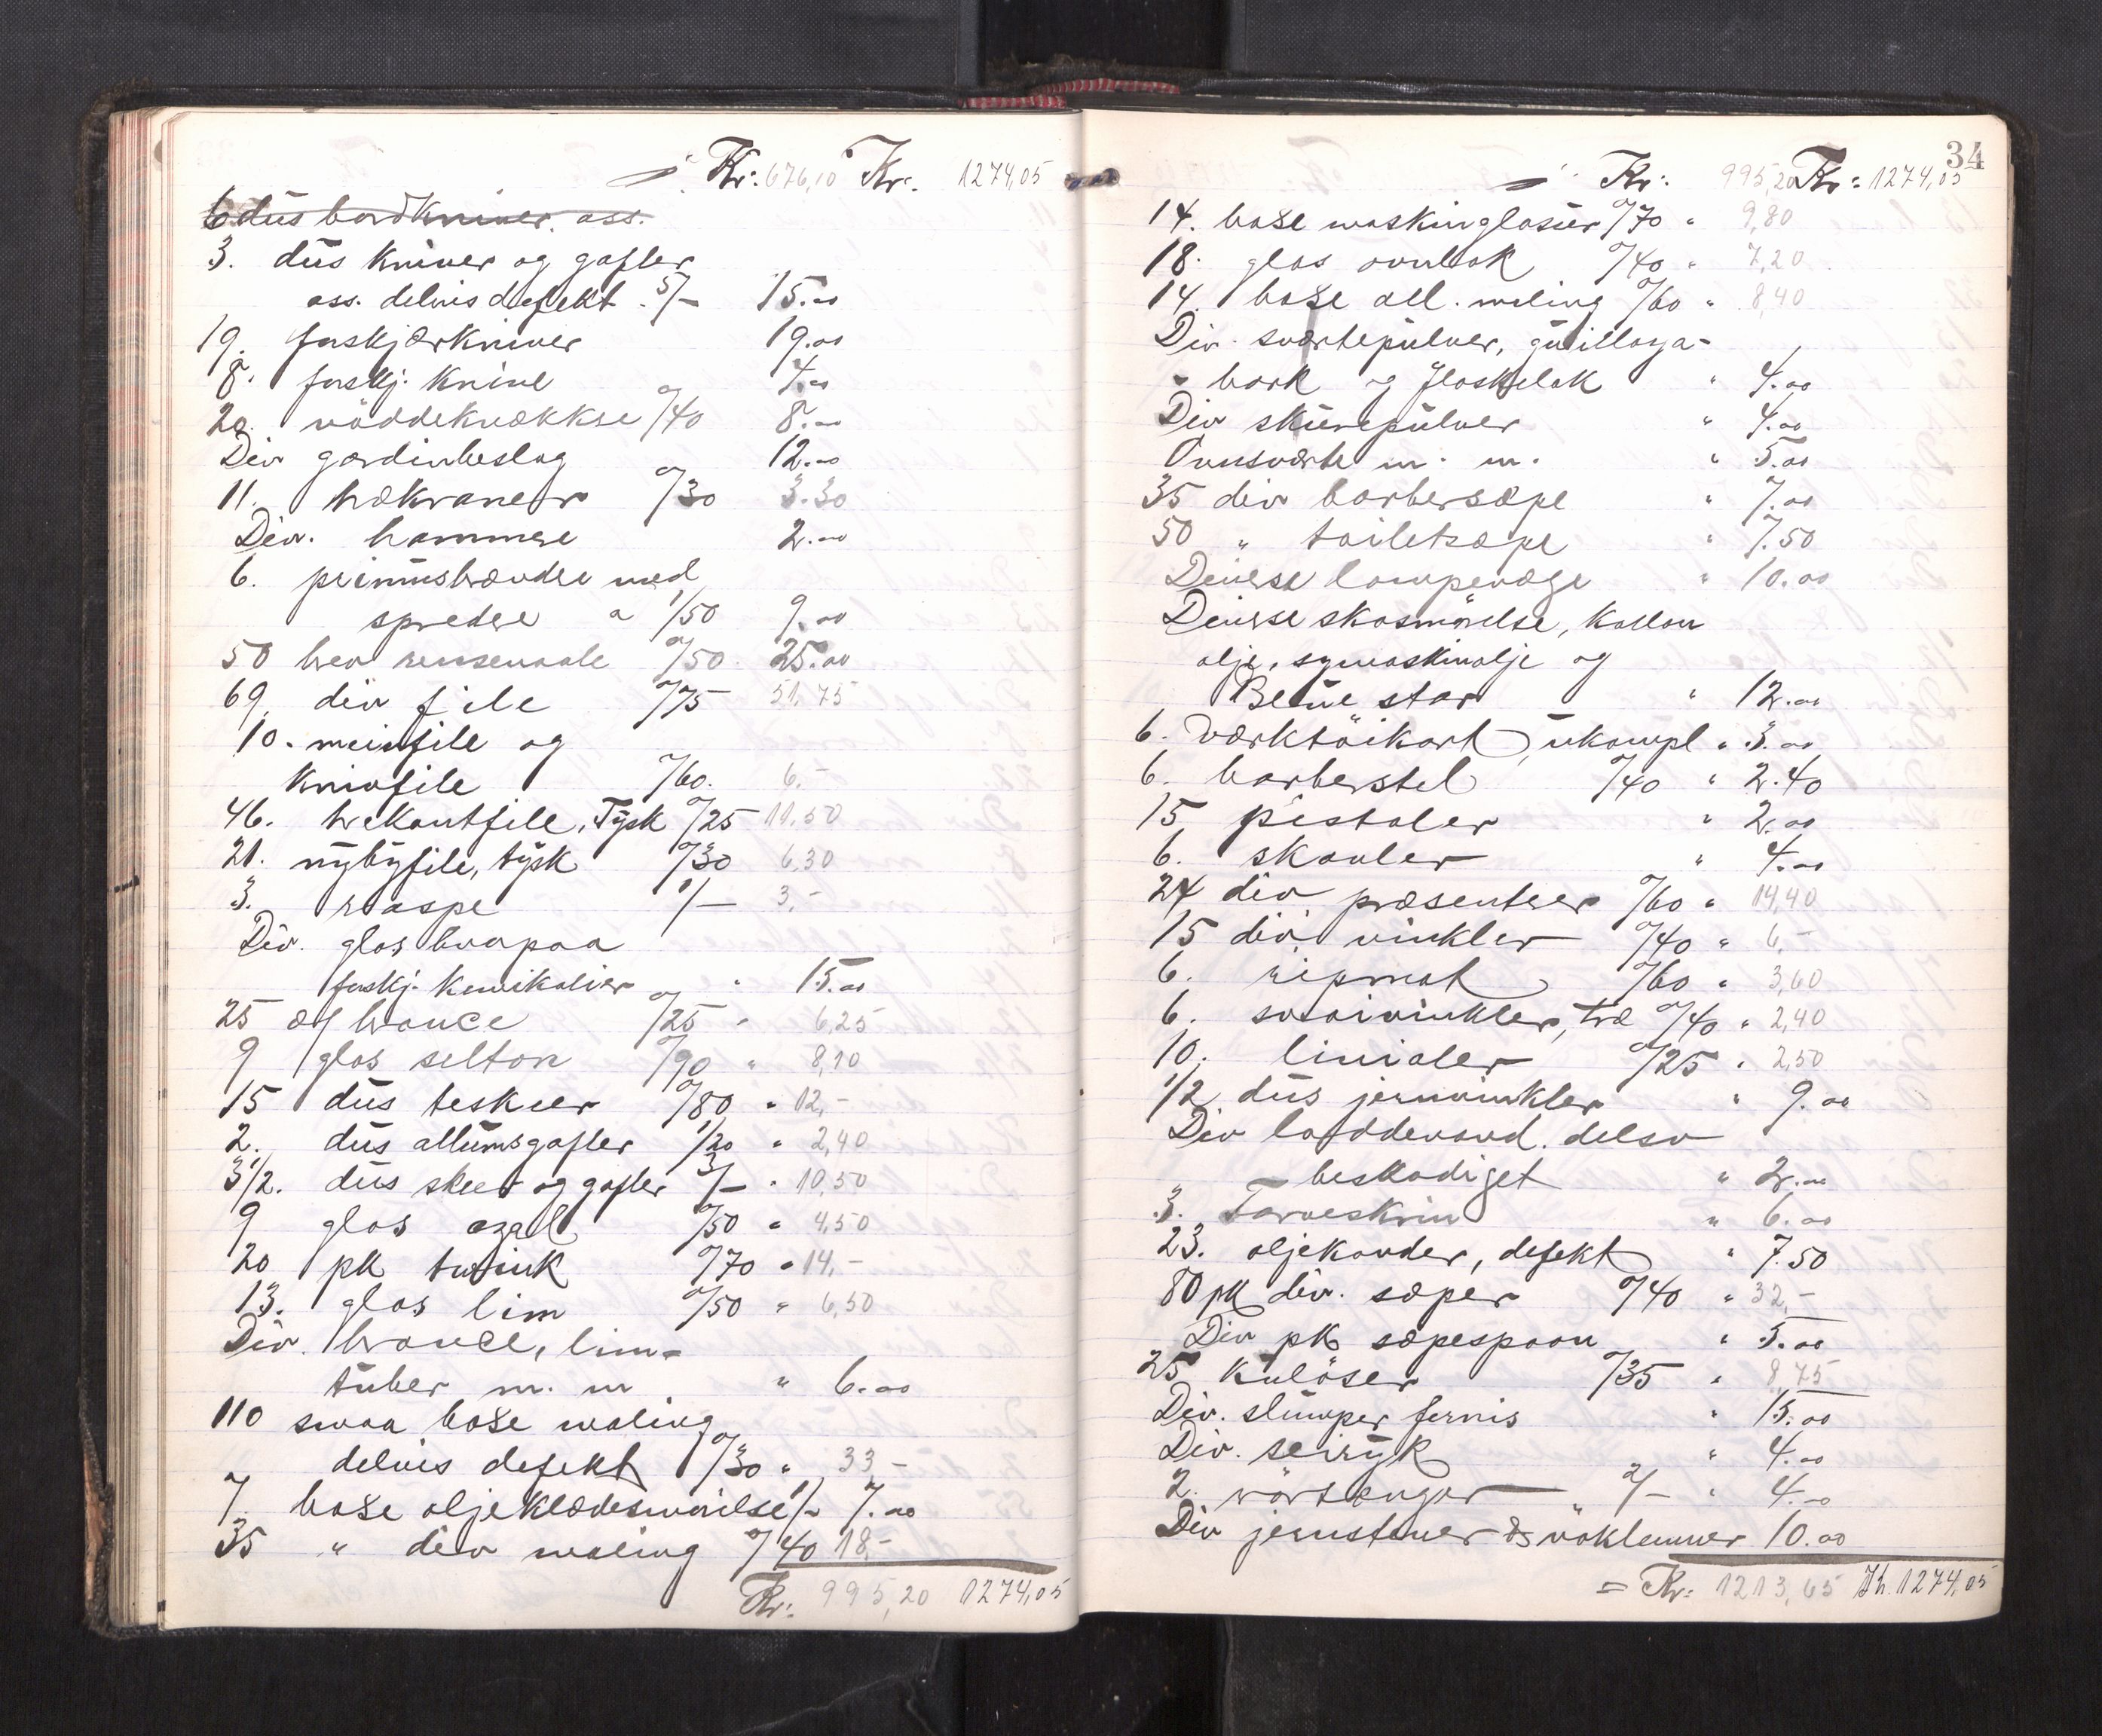 Kr: 676,10 Kr. 1274,05
6 dus bordkniver, ass.
3. dus kniver og gafler
ass. delvis defekt 5/- 15.00
19. forskjærkniver 19.00
8. forskj. knive 4.00
20. nöddeknækkere 0/40 8.00
Div gardinbeslag 12.00
11. trækraner 0/30 3.30
Div. hammere 2.00
6. primusbrændere med
spreder a 1/50 9.00
50 brev rensenaale 0/50 25.00
69. div file 0/75 51,75
10. meisfile og
knivfile 0/60. 6,-
46. trekantfile, Tysk 0/25 11.50
21. nybyfile, tysk 0/30 6,30
3. raspe 1/- 3,-
Div. glas
forskj. kemikalier " 15.00
25 æs bronce 0/25 " 6,25
9 glas 0/90 " 8,10
15 dus teskeer 0/80 " 12,-
2. dus allumsgafler 1/20 " 2,40
3 1/2. dus skeer og gafler 3/- " 10,50
9 glas 0/50 " 4,50
20 pk twink 0/70 " 14,-
13. glas lim 0/50 " 6,50
Div. bronce, lim-
tuber m. m. " 6.00
110 smaa bokse maling
delvis defekt 0/30 " 33,-
7 bokse oljeklædesmörelse 1/- 7.00
35 " div maling 0/40 18,-
Kr: 995,20 1274,05
34
Kr: 995,20 Kr: 1274,05
14. bokse maskinglasur 0/70 " 9,80
18. glas ovnlak 0/40 " 7,20
14. bokse all. maling 0/60 " 8,40
Div. sværtepulver, quillaya-
bark og flaskelak " 4.00
Div skurepulver " 4.00
Ovnsværte m. m. " 5.00
35 div barbersæpe " 7.00
50 " toiletsæpe " 7.50
Diverse lampevæge " 10.00
Diverse skosmörelse,
olje, symaskinolje og
" 12.00
6. Værktöikort, ukompl " 3.00
6. barberstel 0/40 " 2.40
15. pistoler " 2.00
6. skovler " 4.00
24 div præsenter 0/60 " 14,40
15 div. vinkler 0/40 " 6,-
6. ripmot 0/60 " 3,60
6. svaivinkler, træ 0/40 " 2,40
10. linialer 0/25 " 2,50
1/2 dus jernvinkler " 9.00
Div loddevand. delsv
" beskadiget " 2.00
3. Farveskrin " 6.00
23. oljekander, defekt " 7.50
80 pk div. sæper 0/40 " 32,-
Div pk sæpespaan " 5.00
25 kulöser 0/35 " 8,75
Div. slumper fernis " 15.00
Div. " 4.00
2. rörtænger 2/- " 4.00
Div jernstenner & 10.00
= Kr: 1213,65 Kr. 1274,05